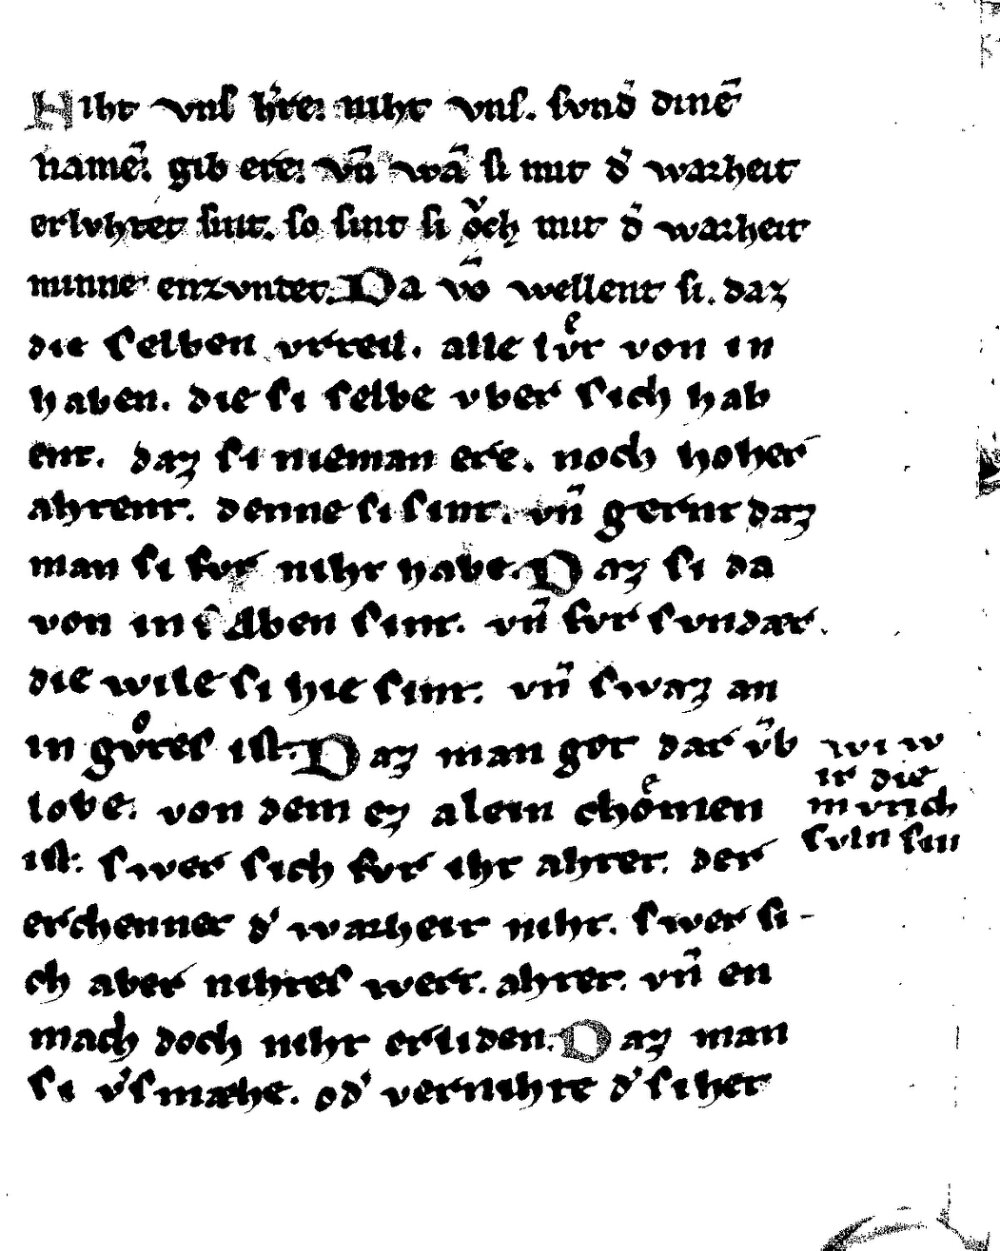 Niht vnſ h̓re. niht vnſ. ſvnd̓ dinē
namē. gib ere. vn̄ wā ſi mit d̓ warheit
erlvhtet ſint. ſo ſint ſi oͮch mit d̓ warheit
minne enzvntet. Da vō wellent ſi. daz
die ſelben vrteil. alle lvͤt von in
haben. die ſi ſelbe vber ſich hab
ent. daz ſi nieman ere. noch hoher
ahtent. denne ſi ſint. vn̄ gernt daz
man ſi fvr niht habe. Daz ſi da
von in ſelben ſint. vn̄ fvr ſvndær.
die wile ſi hie ſint. vn̄ ſwaz an
in gvͦteſ iſt. Daz man got dar v̄b
lobe. von dem ez alein choͤmen
iſt. ſwer ſich fvr iht ahtet. der
erchennet d̓ warheit niht. ſwer ſi-
ch aber nihteſ wert. ahtet. vn̄ en
mach doch niht erliden. Daz man
ſi v̓ſmæhe. od̓ vernihte d̓ ſihet
wi w
ir die
mvnch
ſvln ſin